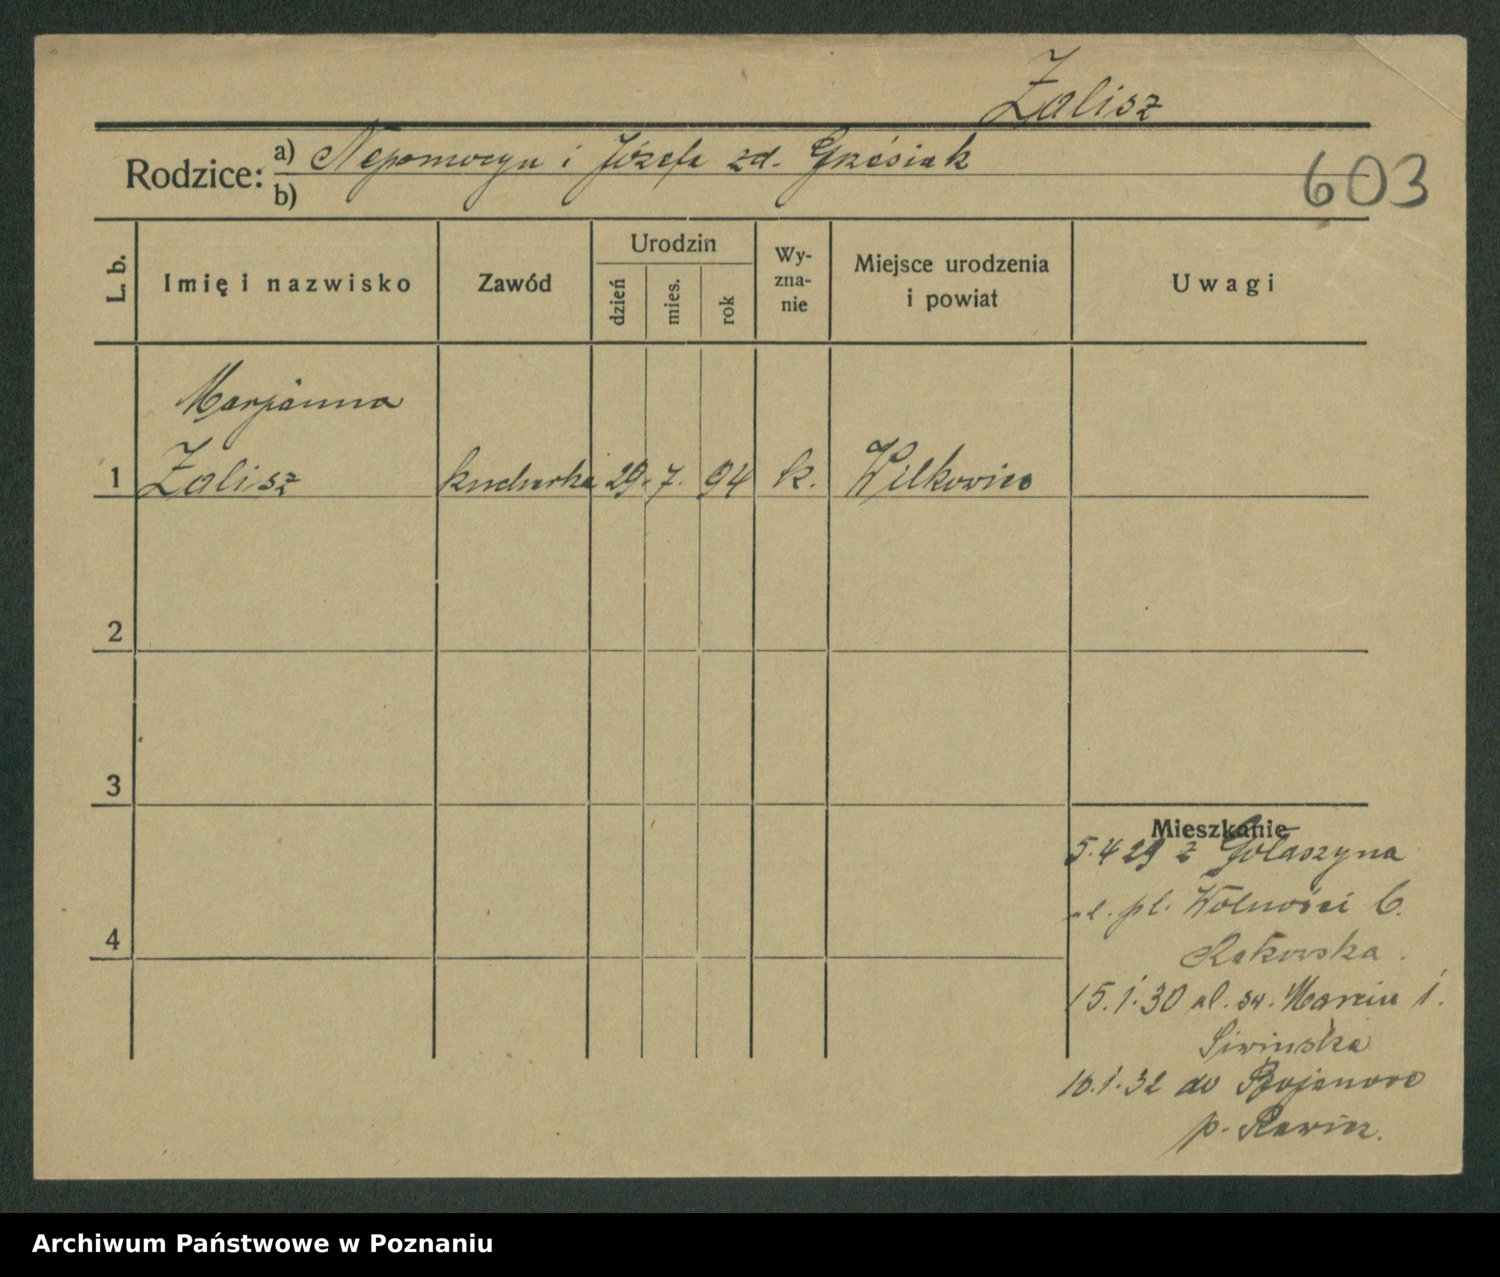 Żalisz
Rodzice: a) Nepomucyn i Józefa zd. Grześiak
b)
603
L. b.
Imię i nazwisko
Zawód
Urodzin
dzień
mies.
rok
Wy-
zna-
nie
Miejsce urodzenia
i powiat
Uwagi
Marjanna
1 Żalisz kucharka 29. 7. 94 k. Wilkowice
2
3
Mieszkanie
5.4 29 z Gołaszyna
ul. pl. Wolności 6.
4
Rakowska.
15.1.30 ul. św. Marcin 1.
Siwinska
16.1.32 do Bojanowo
p. Rawicz.
Archiwum Państwowe w Poznaniu